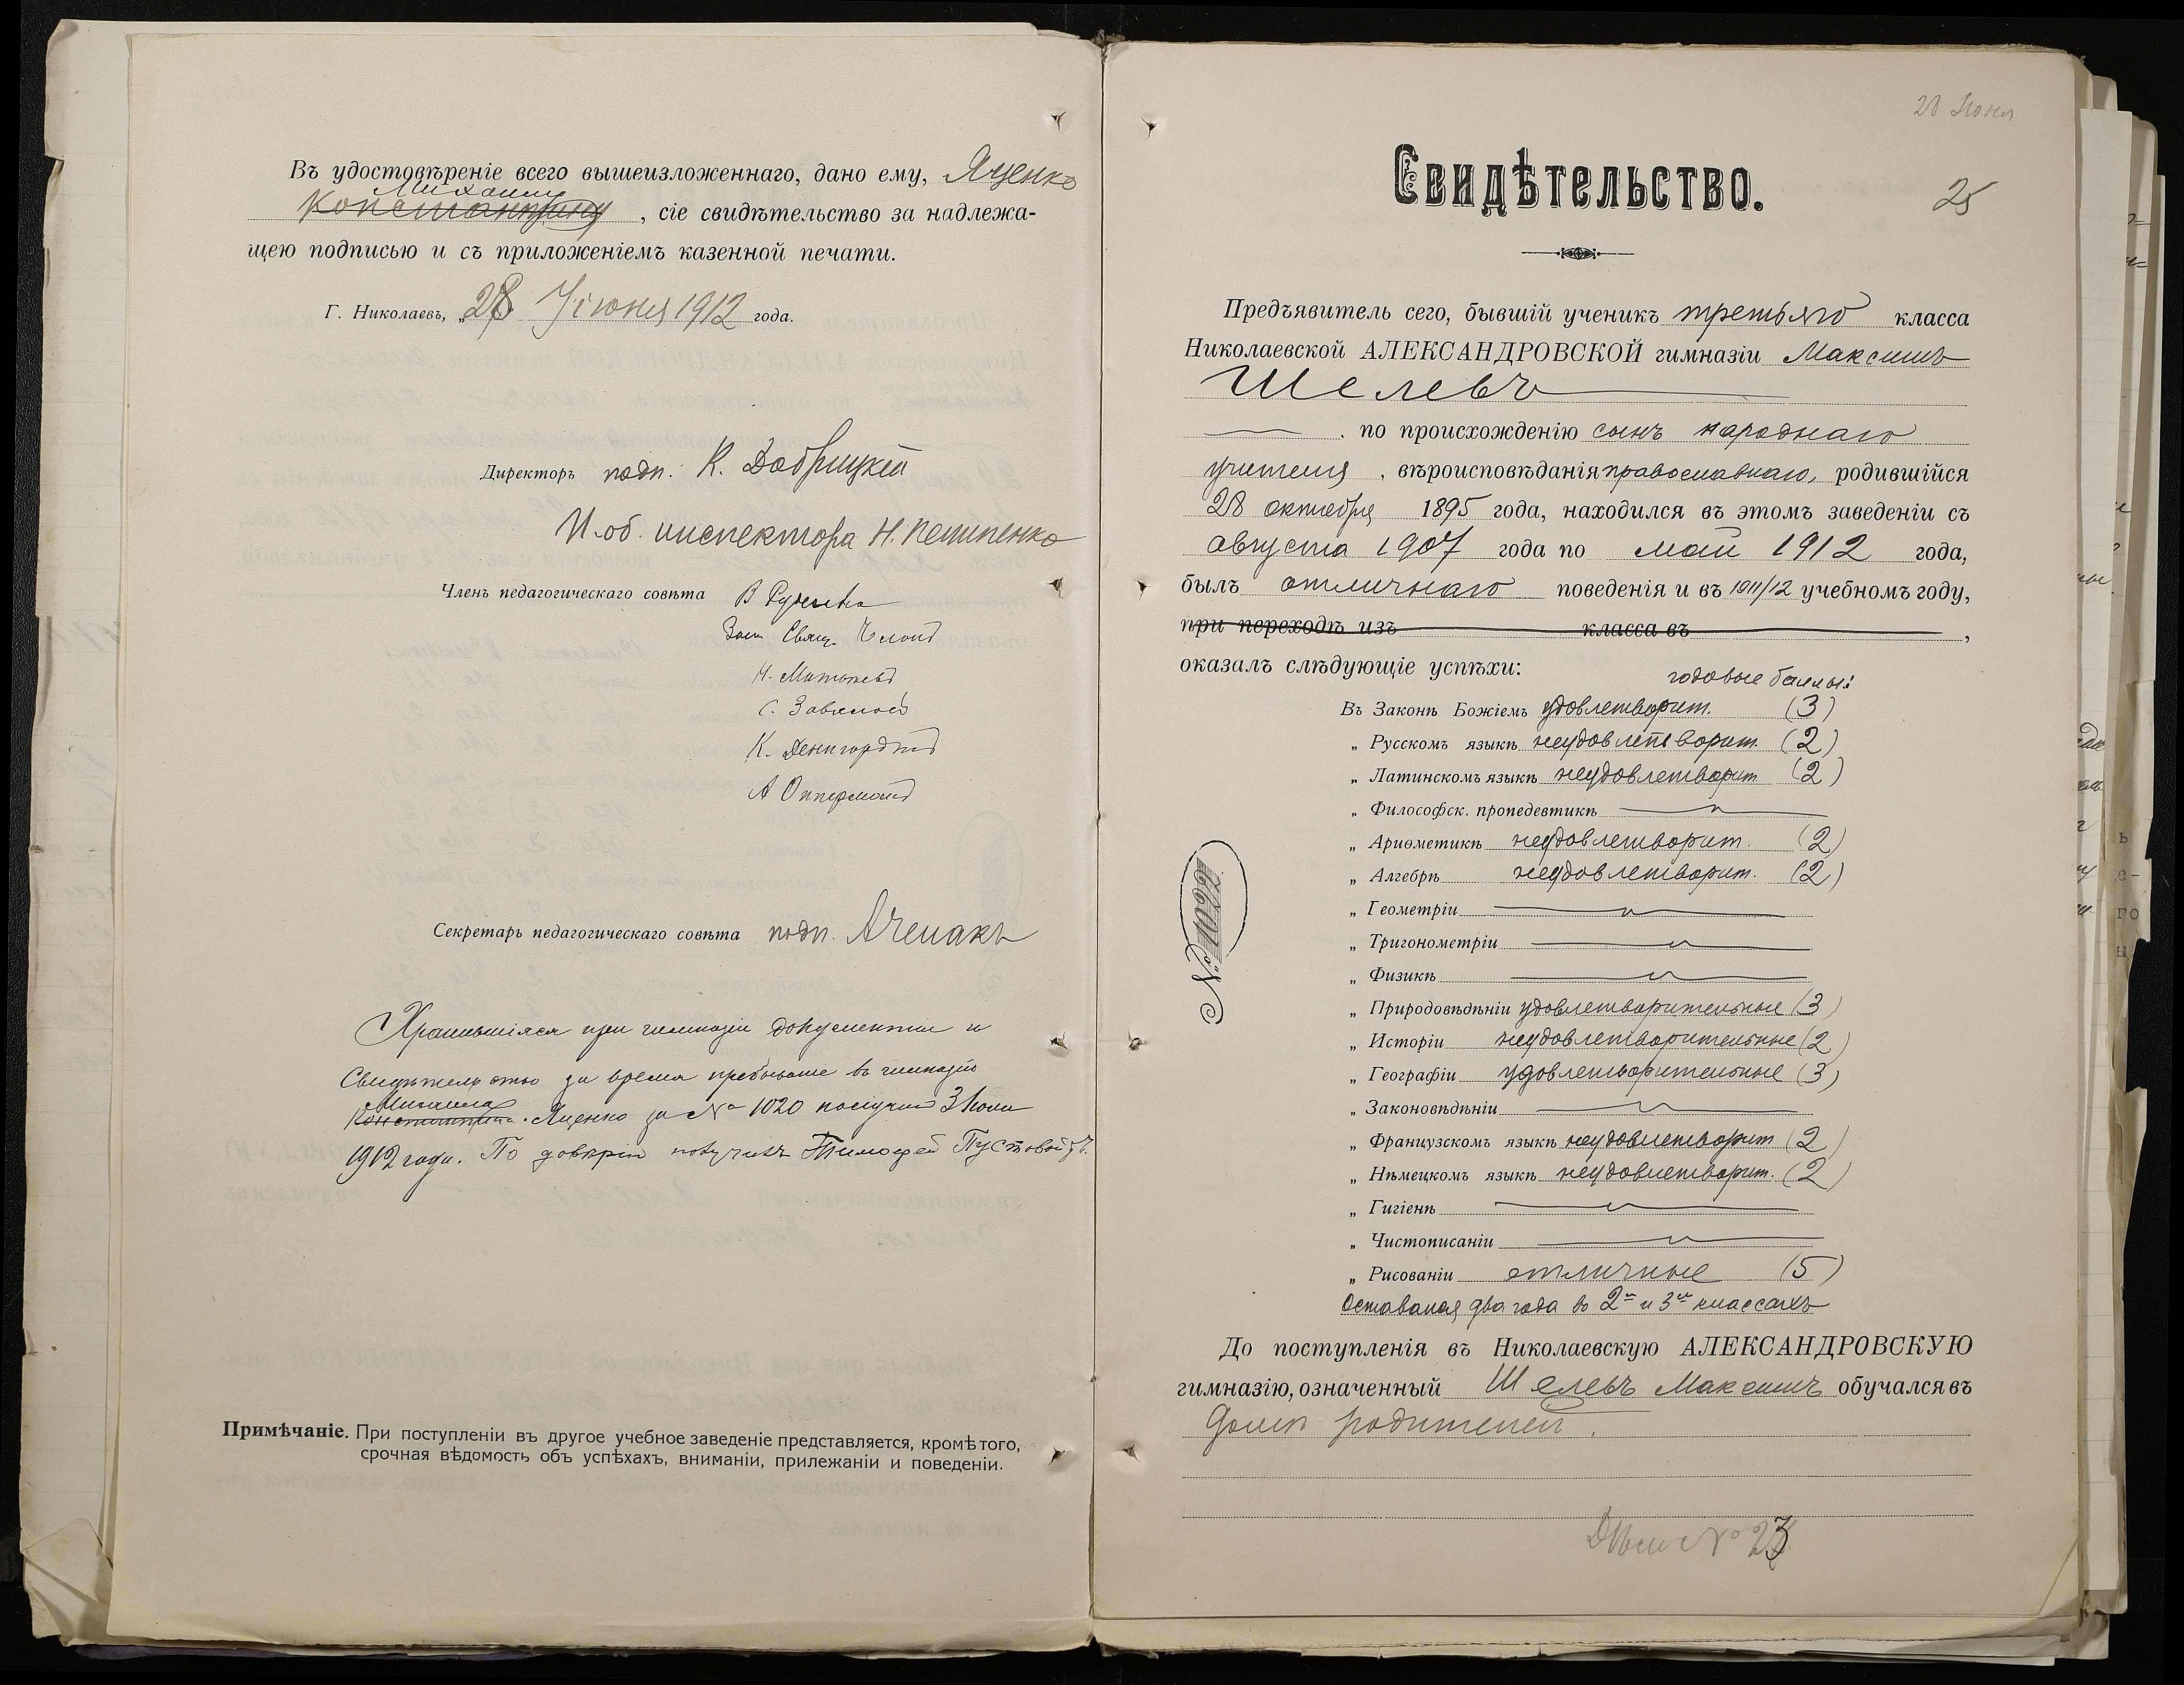 Въ удостовѣреніе всего вышеизложеннаго, дано ему, Яценко
Михаилу
Константину, сіе свидѣтельство за надлежа-
щею подписью и съ приложеніемъ казенной печати.
Г. Николаевъ, „28 Іюня 1912 года.
Директоръ подп. К. Добрицкій
И. об. инспектора Н.
Членъ педагогическаго совѣта В
Свящ.
Н.
С.
К.
А Опперманъ
Секретарь педагогическаго совѣта подп.
Хранившіяся при гимназіи документы и
Свидѣтельство за время пребыванія въ гимназіи
Михаила
Константина Яценко за № 1020 получилъ 3 Іюля
1912 года. По довѣрію получилъ Тимофей Пустовой
Примѣчаніе. При поступленіи въ другое учебное заведеніе представляется, кромѣ того,
срочная вѣдомость объ успѣхахъ, вниманіи, прилежаніи и поведеніи.
28 Іюня
Свидѣтельство.
25
Предъявитель сего, бывшій ученикъ третьяго класса
Николаевской АЛЕКСАНДРОВСКОЙ гимназіи Максимъ
Шелевъ
по происхожденію сынъ народнаго
учителя, вѣроисповѣданія православнаго, родившійся
28 октября 1895 года, находился въ этомъ заведеніи съ
августа 1907 года по май 1912 года,
былъ отличнаго поведенія и въ 1911/12 учебномъ году,
при переходѣ изъ класса въ ,
оказалъ слѣдующіе успѣхи:
годовые баллы:
Въ Законѣ Божіемъ удовлетворит. (3)
„ Русскомъ языкѣ неудовлетворит. (2)
„ Латинскомъ языкѣ неудовлетворит (2)
„ Философск. пропедевтикѣ
„ Ариѳметикѣ неудовлетворит. (2)
„ Алгебрѣ неудовлетворит. (2)
„ Геометріи
„ Тригонометріи
„ Физикѣ
„ Природовѣдѣніи удовлетворительные (3)
„ Исторіи неудовлетворительные (2)
„ Географіи удовлетворительные (3)
„ Законовѣдѣніи
„ Французскомъ языкѣ неудовлетворит (2)
„ Нѣмецкомъ языкѣ неудовлетворит. (2)
„ Гигіенѣ
„ Чистописаніи
„ Рисованіи отличные (5)
Оставался два года во 2м и 3м классахъ
№ 1022
До поступленія въ Николаевскую АЛЕКСАНДРОВСКУЮ
гимназію, означенный Шелевъ Максимъ обучался въ
домѣ родителей.
Дѣло № 23